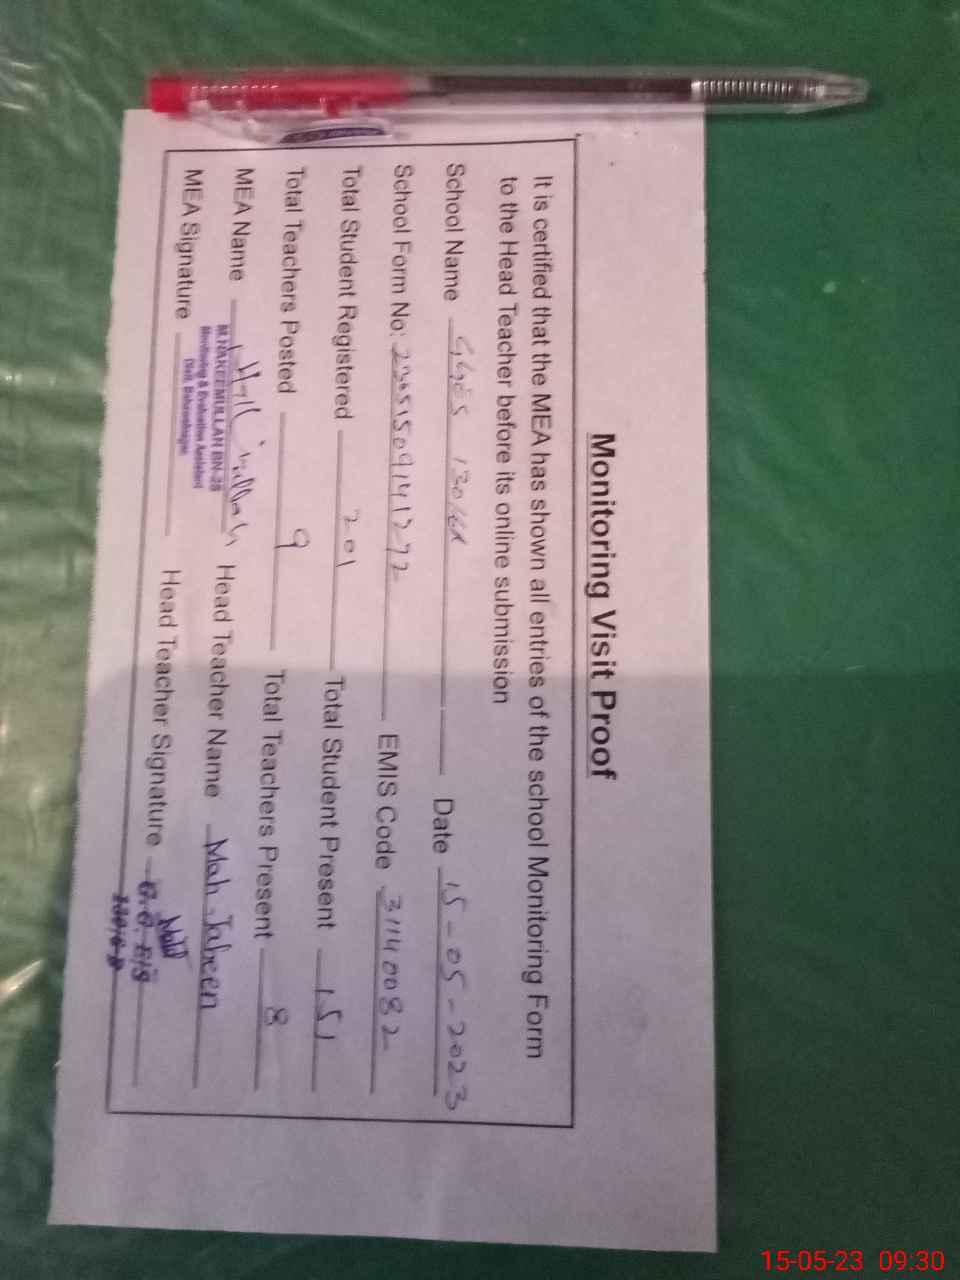 Monitoring Visit Proof
It is certified that the MEA has shown all entries of the school Monitoring Form
to the Head Teacher before its online submission
School Name GGES 130/6R Date 15-05-2023
School Form No: EMIS Code 31140082
Total Student Registered 201 Total Student Present 151
Total Teachers Posted 9 Total Teachers Present 8
MEA Name Head Teacher Name Mah Jabeen
M.HAKEEMULLAH BN-28
Monitoring & Evaluation Assistant
Distt. Bahawalnagar
MEA Signature Head Teacher Signature
15-05-23 09:30